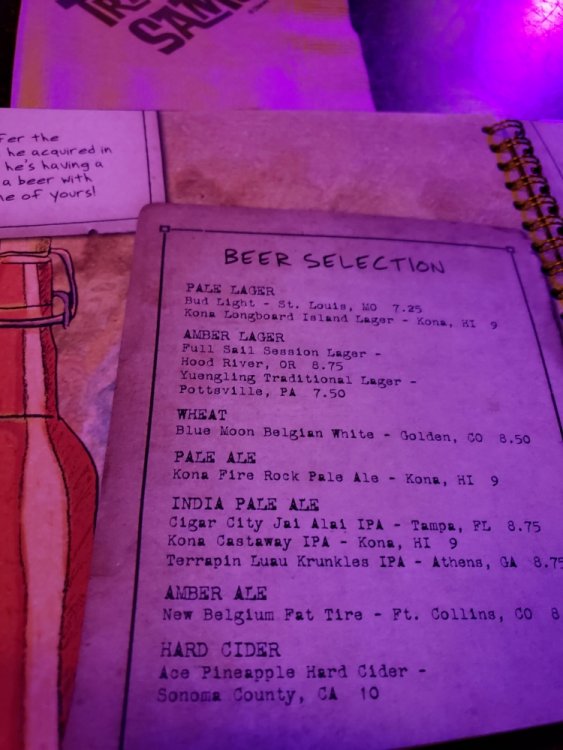 SAM
fer the
he acquired in
he's having a
a beer with
ne of yours!
BEER SELECTION
PALE LAGER
Bud Light - St. Louis, MO 7.25
Kona Longboard Island Lager - Kona, HI 9
AMBER LAGER
Full Sail Session Lager -
Hood River, OR 8.75
Yuengling Traditional Lager -
Pottsville, PA 7.50
WHEAT
Blue Moon Belgian White - Golden, CO 8.50
PALE ALE
Kona Fire Rock Pale Ale - Kona, HI 9
INDIA PALE ALE
Cigar City Jai Alai IPA - Tampa, FL 8.75
Kona Castaway IPA - Kona, HI 9
Terrapin Luau Krunkles IPA - Athens, GA 8.75
AMBER ALE
New Belgium Fat Tire - Ft. Collins, CO 8
HARD CIDER
Ace Pineapple Hard Cider -
Sonoma County, CA 10